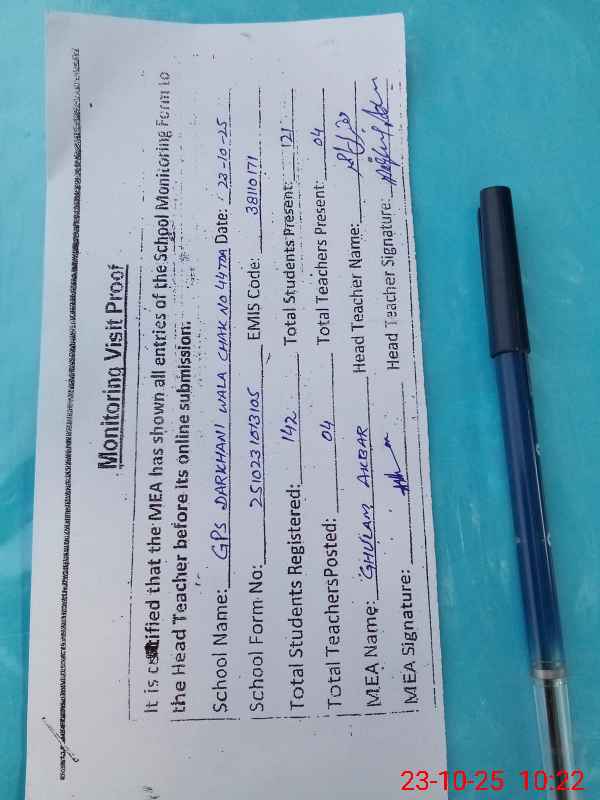 Monitoring Visit Proof
It is certified that the MEA has shown all entries of the School Monitoring Form to
the Head Teacher before its online submission.
School Name: GPS DARKHANI WALA CHAK NO 44TDA Date: 23-10-25
School Form No: 2510231013105 EMIS Code: 38110171
Total Students Registered: 142 Total Students Present: 121
Total TeachersPosted: 04 Total Teachers Present: 04
MEA Name: GHULAM AKBAR Head Teacher Name:
MEA Signature: Head Teacher Signature:
23-10-25 10:22